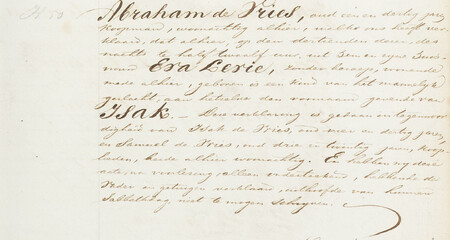 Abraham de Vries, oud een en dertig jaren,
koopman, woonachtig alhier, welke ons heeft ver-
klaard, dat alhier, op den dertienden dezer, des
nachts te half twaalf ure, uit hem en zijne huis-
vrouw Eva Levie, zonder beroep, wonende
mede alhier, geboren is een kind van het mannelijk
geslacht, aan hetwelke den voornaam gevende van
Isak. — Deze verklaring is gedaan in tegenwoor-
digheid van Isak de Vries, oud twee en dertig jaren,
en Samuel de Vries, oud drie en twintig jaren, koop-
lieden, beide alhier woonachtig. En hebben wij deze
acte, na voorlezing, alleen onderteekend, hebbende de
Vader en getuigen verklaard, uit hoofde van hunnen
Sabbathdag niet te mogen schrijven.